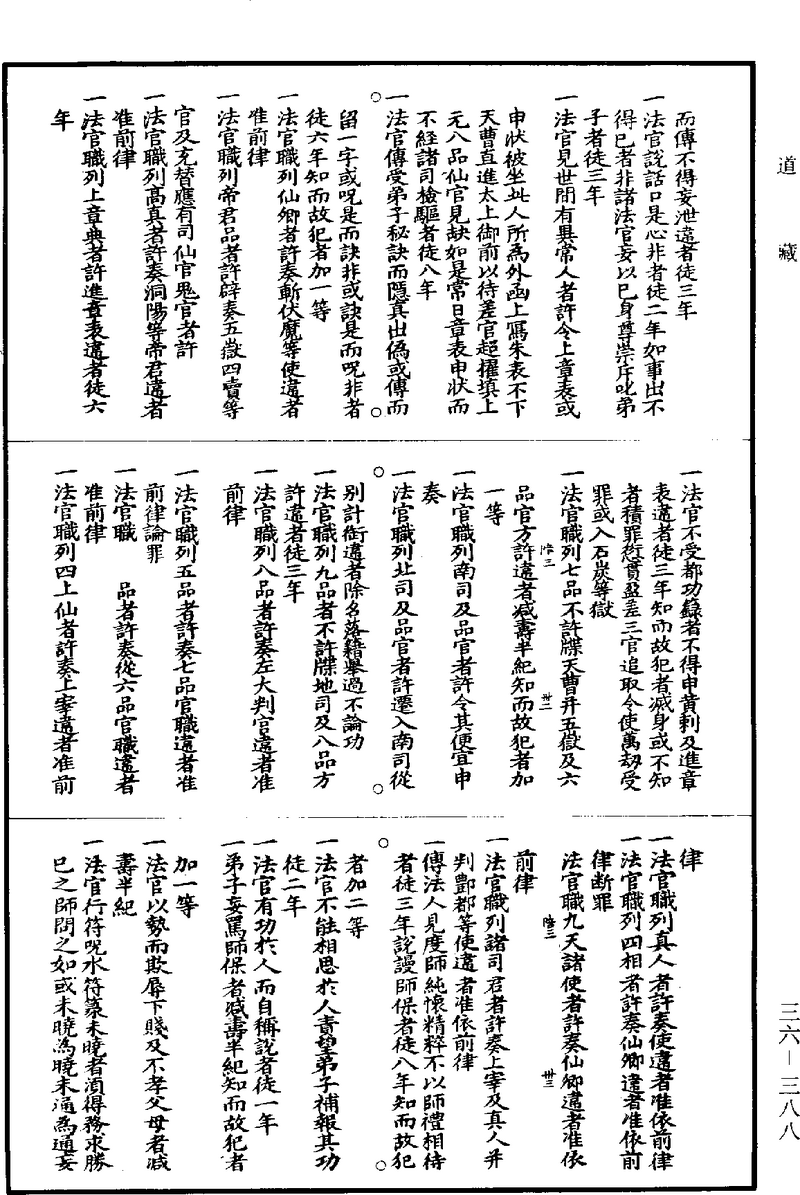 道藏
而傳不得妄泄違者徒三年
一法官說話口是心非者徒二年如事出不
得已者非諸法官妄以己身尊崇斥叱弟
子者徒三年
一法官見世間有異常人者許令上章表或
申狀彼坐此人所為外函上寫朱表不下
天曹直進太上御前以待差官超擢填上
元八品仙官見缺如是常日章表申狀而
不經諸司檢驅者徒八年
一法官傳受弟子秘訣而隱真出偽或傳而
留一字或呪是而訣非或訣是而呪非者
徒六年知而故犯者加一等
一法官職列仙卿者許奏斬伏魔等使違者
准前律
一法官職列帝君品者許辟奏五嶽四瀆等
官及充替應有司仙官鬼官者許
一法官職列高真者許奏洞陽等帝君違者
准前律
一法官職列上章典者許進章表違者徒六
年
一法官不受都功籙者不得申黃剌及進章
表違者徒三年知而故犯者滅身或不知
者積罪愆貫盈差三官追取令使萬劫受
罪或入石炭等獄
一法官職列七品不許牒天曹并五嶽及六
品官方許違者減壽半紀知而故犯者加
一等
一法官職列南司及品官者許令其便宜申
奏
一法官職列北司及品官者許遷入南司從
別計銜違者除名落籍舉過不論功
一法官職列九品者不許牒地司及八品方
許違者徒三年
一法官職列八品者許奏左大判官違者准
前律
一法官職列五品者許奏七品官職違者准
前律論罪
一法官職 品者許奏從六品官職違者
准前律
一法官職列四上仙者許奏上宰違者准前
陸三
卅二
律
一法官職列真人者許奏使違者准依前律
一法官職列四相者許奏仙卿違者准依前
律斷罪
法官職九天諸使者許奏仙卿違者准依
陸三
卅三
前律
一法官職列諸司君者許奏上宰及真人并
判酆都等使違者准依前律
一傳法人見度師純懷精粹不以師禮相待
者徒三年說謾師保者徒八年知而故犯
者加二等
一法官不能相思於人責望弟子補報其功
徒二年
一法官有功於人而自稱說者徒一年
一弟子妄罵師保者減壽半紀知而故犯者
加一等
一法官以勢而欺辱下賤及不孝父母者減
壽半紀
一法官行符呪水符篆未曉者須得務求勝
己之師問之如或未曉為曉未通為通妄
三六－三八八